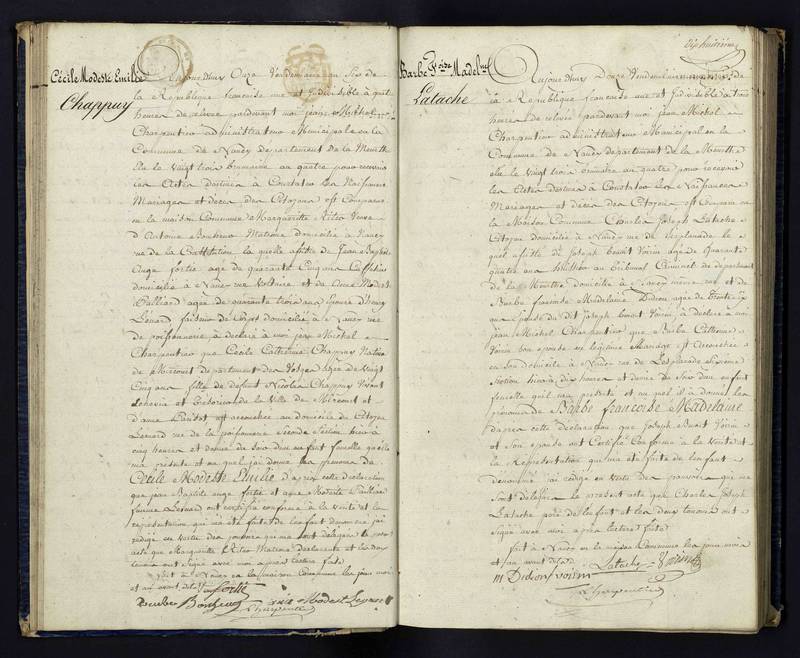 Cécile Modeste Emilie
Chappuy
aujourd'huy Onze Vendemiaire an Six de
la Republique française une et Indivisible à
heures de pardevant moi jean Michel
Charpentier administrateur Municipal en la
Commune de Nancy departement de la Meurthe
élu le vingt trois brumaire an quatre pour recevoir
les Actes destinés à Constater les Naissances
Mariages et décès des Citoyens est Comparue
en la maison Commune Marguerite veuve
d'Antoine Matrone domiciliée à Nancy
rue de la Constitution la quelle assistée de Jean Baptiste
Ange fortié agé de quarante Cinq ans
domicilié à Nancy rue Voltaire et de Anne Modeste
agée de quarante trois ans Epouse d'
Lénard de Corps domicilié à Nancy rue
de poissonnerie à déclaré à moi jean Michel
Charpentier que Cécile Catherine Chappuy Native
de Mirecourt departement des Vosges agée de Vingt
Cinq ans fille de defunt Nicolas Chappuy Vivant
et de la Ville de Mirecourt et
d'anne est accouchée au domicile du Citoyen
Lenard rue de la poissonnerie Seconde Section hier à
cinq heures et demie du Soir d'un enfant femelle qu'elle
m'a présenté et au quel j'ai donné les prénoms de
Cécile Modeste Emilie d'après cette déclaration
que jean Baptiste ange fortié et anne Modeste
femme Lénard ont certifiée conforme à la vérité et la
représentation qui m'a été faite de l'enfant dénommé j'ai
rédigé en vertu des pouvoirs qui me sont délégués le présent
acte que Marguerite Matrone déclarante et les deux
temoins ont Signé avec moi après lecture faite
fait à Nancy en la maison Commune les jour mois
et an avant dits fortié
Modeste Lenard
Charpentier
Dix huitième
Barbe F.oise Madel.ne
Latache
Aujourd'huy Douze Vendemiaire de
la Republique française une et Indivisible à trois
heures de relevée pardevant moi jean Michel
Charpentier administrateur Municipal en la
Commune de Nancy departement de la Meurthe
élu le vingt trois brumaire an quatre pour recevoir
les Actes destinés à Constater les Naissances
Mariages et décès des Citoyens est Comparu en
la Maison Commune Charles Joseph Latache
Citoyen domicilié à Nancy rue de l'esplanade le
quel assisté de Joseph benoit Voirin agé de quarante
quatre ans huissier au Tribunal Criminel du departement
de la Meurthe domicilié à Nancy même rue et de
Barbe françoise Madelaine Didion agée de Trente
ans Epouse du dit Joseph benoit Voirin à déclaré à moi
jean Michel Charpentier que Barbe Catherine
Voirin Son épouse en légitime Mariage est accouchée
en son domicile à Nancy rue de l'esplanade
Section hier à dix heures et demie du Soir d'un enfant
femelle qu'il m'a présenté et au quel il a donné les
prénoms de Barbe françoise Madelaine
d'après cette déclaration, que Joseph Benoit Voirin
et Son épouse ont Certifiée Conforme à la Vérité et
la Représentation qui m'a été faite de l'enfant
Dénommé j'ai rédigé en vertu des pouvoirs qui me
Sont délégués le présent acte que Charles Joseph
Latache père de l'enfant et les deux temoins ont
Signé avec moi après lecture faite
fait à Nancy en la maison Commune les jour mois
et an avant dits
Latache Voirin
m Didion f voirin
Charpentier